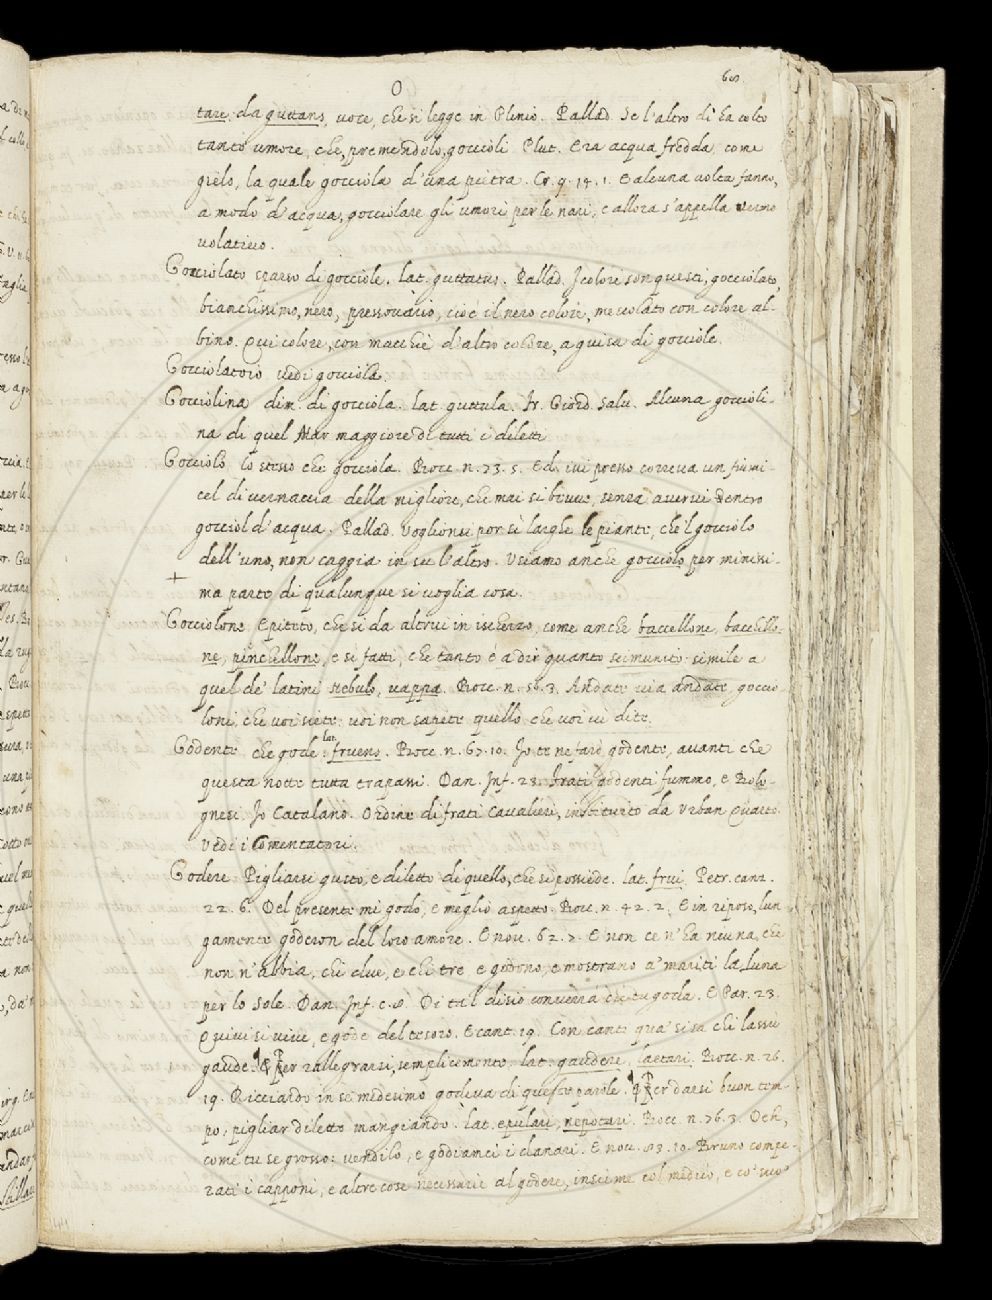 O
tare. da guttans, voce, che si legge in Plinio. Pallad. Se l'altro dì ha colto
tanto umore, che, premendolo, goccioli Plut. Era acqua fredda, come
gielo, la quale gocciola d'una pietra. Cr. 9. 14. 1. E alcuna volta fanno,
a modo d'acqua, gocciolare gli umori per le nari, e allora s'appella vermo
volativo.
Gocciolato sparso di gocciole. lat. guttatus. Pallad. I colori son questi, gocciolato,
bianchissimo, nero, pressovaiio, cioè il nero colore, mescolato con colore al-
bino. Qui colore, con macchie d'altro colore, a guisa di gocciole.
Gocciolatoio vedi gocciola.
Gocciolina dim. di gocciola. lat. guttula. Fr. Giord. Salv. Alcuna goccioli-
na di quel Mar maggiore di tutti i diletti
Gocciolo lo stesso che gocciola. Bocc. n. 73. 5. Ed ivi presso correva un fiumi-
cel di vernaccia della migliore, che mai si bevve, senza avervi dentro
gocciol d'acqua. Pallad. Voglionsi por sì larghe le piante, che 'l gocciolo
dell'uno, non caggia in su l'altro. Usiamo anche gocciolo per minissi-
+
ma parte di qualunque si voglia cosa.
Gocciolone Epiteto, che si da altrui in ischerzo, come anche baccellone, bacchillo-
ne, pinchellone, e sì fatti, che tanto è a dir quanto scimunito. simile a
quel de' latini nebulo, vappa. Bocc. n. 56. 3. Andate via andate, goccio
loni, che voi siete. voi non sapete quello che voi vi dite.
Godente che gode. lat. fruens. Bocc. n. 67. 10. Io te ne farò godente, avanti che
questa notte tutta trapassi. Dan. Inf. 23. Frati godenti fummo, e Bolo-
gnesi. Io Catalano. Ordine di frati Cavalieri, instituito da Urban Quarto.
Vedi i Comentatori.
Godere Pigliarsi gusto, e diletto di quello, che si possiede. lat. frui. Petr. canz.
22. 6. Del presente mi godo, e meglio aspetto. Bocc. n. 42. 2. E in riposo, lun
gamente goderon del loro amore. E nov. 62. 2. E non ce n'ha neuna, che
non n'abbia, chi due, e chi tre e godono, e mostrano a' mariti la luna
per lo Sole. Dan. Inf. c. 8. Di tal disio converrà che tu goda. E Par. 23.
Quivi si vive, e gode del tesoro. E cant. 19. Con canti qua' si sa chi lassù
gaude. Per rallegrarsi, semplicemente. lat. gaudere, laetari. Bocc. n. 26.
19. Ricciardo in se medesimo godeva di queste parole. Per darsi buon tem-
po, pigliar diletto mangiando. lat. epulari, nepotari. Bocc. n. 76. 3. Deh,
come tu se grosso: vendilo, e godiamci i danari. E nov. 83. 10. Bruno compe-
rati i capponi, e altre cose necessarie al godere, insieme col medico, e co' suo